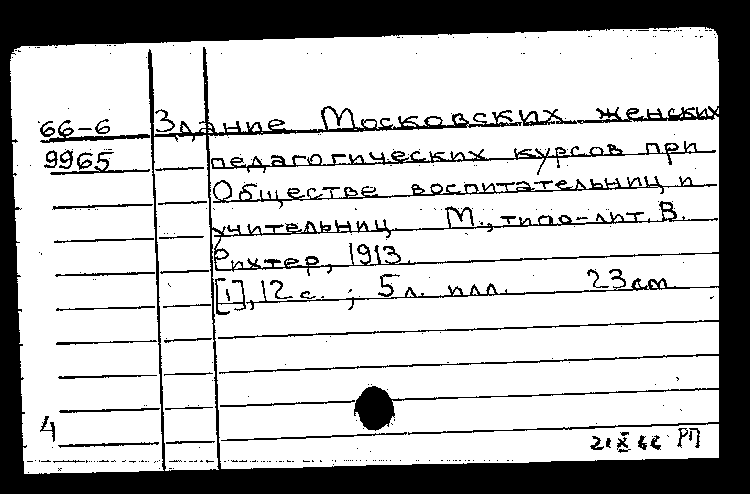 66-6 Здание Московских женских
9965 педагогических курсов при
Обществе воспитательниц и
учительниц М., типо-лит. В.
Рихтер, 1913.
[1], 12 с. ; 5 л. илл. 23 см
4
21 X 66 РП